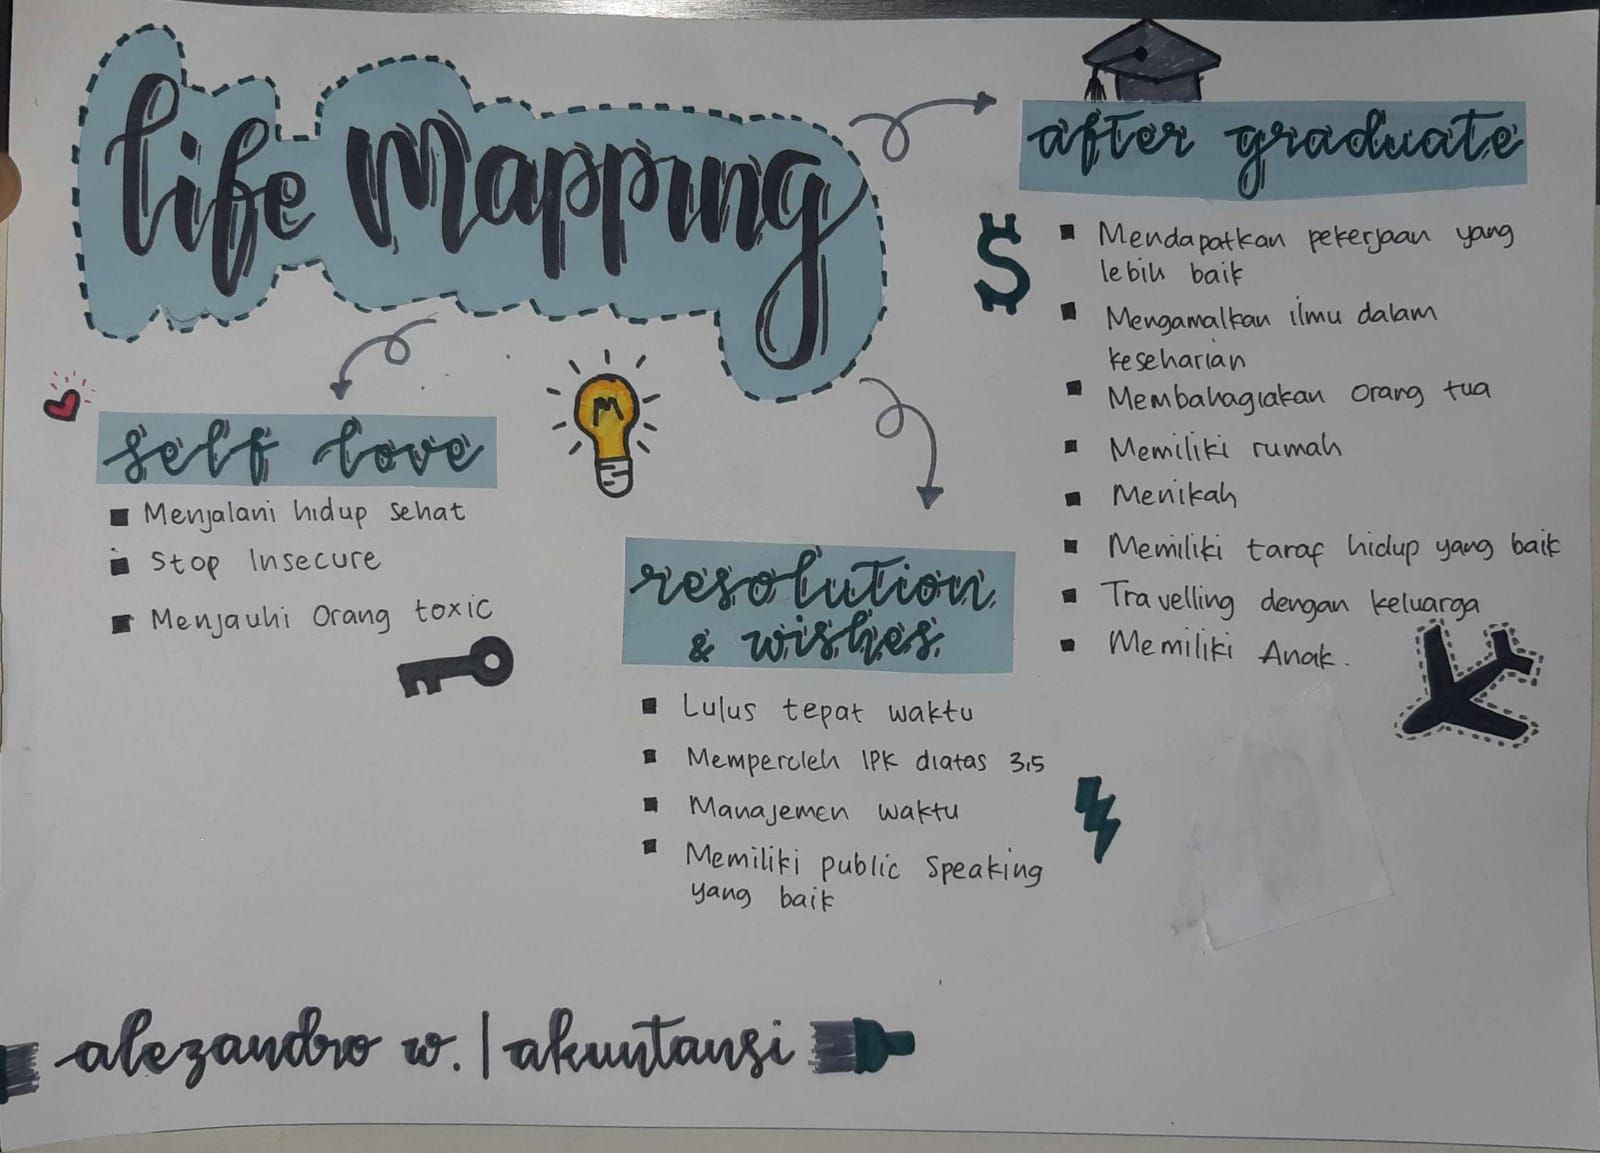 life Mapping
self love
Menjalani hidup sehat
Stop Insecure
Menjauhi Orang toxic
M
resolution
& wishes
Lulus tepat waktu
Memperoleh IPK diatas 3,5
Manajemen waktu
Memiliki public Speaking
yang baik
after graduate
$
Mendapatkan pekerjaan yang
lebih baik
Mengamalkan ilmu dalam
keseharian
Membahagiakan Orang tua
Memiliki rumah
Menikah
Memiliki taraf hidup yang baik
Travelling dengan keluarga
Memiliki Anak.
alezandro w. | akuntansi